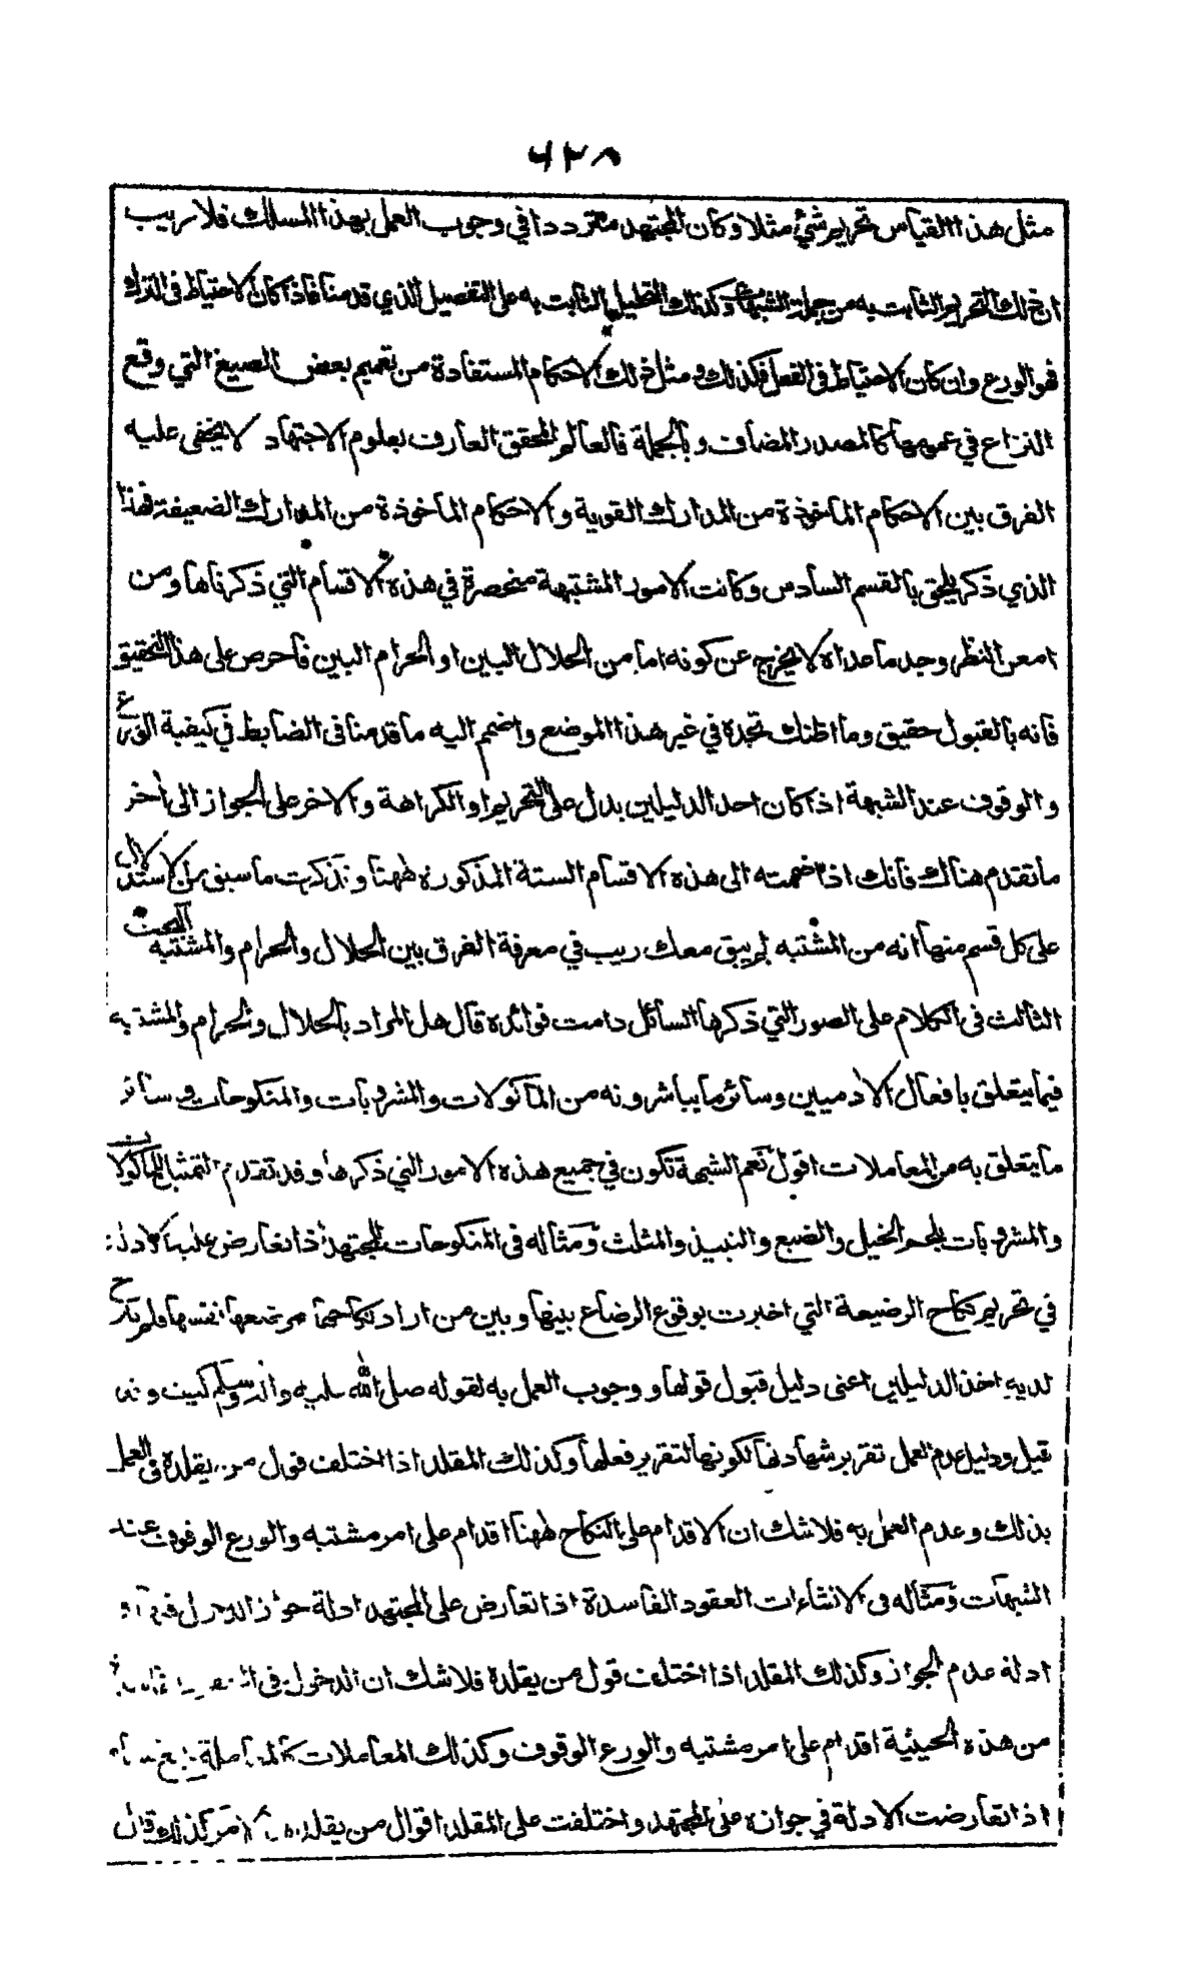 ٦٢٨
مثل هذا القياس تحريم شئ مثلا وكان المجتهد مترددا في وجوب العمل بهذا المسلك فلا ريب
ان ذلك التحريم الثابت به من جملة الشبهات وكذلك التحليل الثابت به على التفصيل الذي قدمنا فاذا كان الاحتياط في الترك
فهو الورع وان كان الاحتياط في الفعل فكذلك ومثل ذلك الاحكام المستفادة من تعميم بعض الصيغ التي وقع
النزاع في عمومها كالمصدر المضاف وبالجملة فالعالم المحقق العارف بعلوم الاجتهاد لا يخفى عليه
الفرق بين الاحكام المأخوذة من المدارك القوية والاحكام المأخوذة من المدارك الضعيفة فهذا
الذي ذكر يلحق بالقسم السادس وكانت الامور المشتبهة منحصرة في هذه الاقسام التي ذكرناها ومن
امعن النظر وجد ما عداه لا يخرج عن كونه اما من الحلال البين او الحرام البين فاحرص على هذا التحقيق
فانه بالقبول حقيق وما اظنك تجده في غير هذا الموضع واضمم اليه ما قدمنا في الضابط في كيفية التورع
والوقوف عند الشبهة اذا كان احد الدليلين يدل على التحريم او الكراهة والاخر على الجواز الى أخر
ما تقدم هنالك فانك اذا ضممته الى هذه الاقسام الستة المذكورة ههنا وتذكرت ما سبق من الاستدلال
على كل قسم منها انه من المشتبه لم يبق معك ريب في معرفة الفرق بين الحلال والحرام والمشتبه البحث
الثالث في الكلام على الصور التي ذكرها السائل دامت فوائده قال هل المراد بالحلال والحرام والمشتبه
فيما يتعلق بافعال الأدميين وسائر ما يباشرونه من المأكولات والمشروبات والمنكوحات وسائر
ما يتعلق به من المعاملات اقول نعم الشبهة تكون في جميع هذه الامور التي ذكرها وقد تقدم التمثيل للمأكولات
والمشروبات بلحم الخيل والضبع والنبيذ والمثلث ومثاله في المنكوحات للمجتهد اذا تعارض عليه الادلة
في تحريم نكاح الرضيعة التي اخبرت بوقوع الرضاع بينها وبين من اراد نكاحها مرضعها نفسها ولم يترجح
لديه احد الدليلين اعنى دليل قبول قولها ووجوب العمل به لقوله صلى الله عليه وآله وسلم كيف وقد
قيل ودليل عدم العمل تقرير شهادتها لكونها لتقرير فعلها وكذلك المقلد اذا اختلف قول من يقلده في العمل
بذلك وعدم العمل به فلا شك ان الاقدام على النكاح ههنا اقدام على امر مشتبه والورع الوقوف عند
الشبهات ومثاله في الانشاءات العقود الفاسدة اذا تعارض على المجتهد ادلة جواز الدخول فيها و
ادلة عدم الجواز وكذلك المقلد اذا اختلف قول من يقلده فلا شك ان الدخول في
من هذه الحيثية اقدام على امر مشتبه والورع الوقوف وكذلك المعاملات
اذا تعارضت الادلة في جوازه على المجتهد واختلفت على المقلد اقوال من يقلده كذلك قال